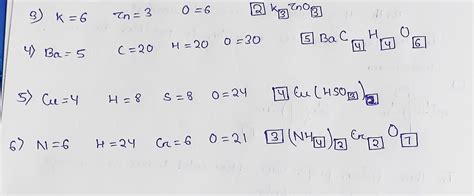 3) K=6 In=3 O=6 [2] K[3]InO[3]
4) Ba=5 C=20 H=20 O=30 [5] BaC[4]H[4]O[6]
5) Cu=4 H=8 S=8 O=24 [4] Cu(HSO[3])[2]
6) N=6 H=24 Cr=6 O=21 [3] (NH[4])[2]Cr[2]O[7]